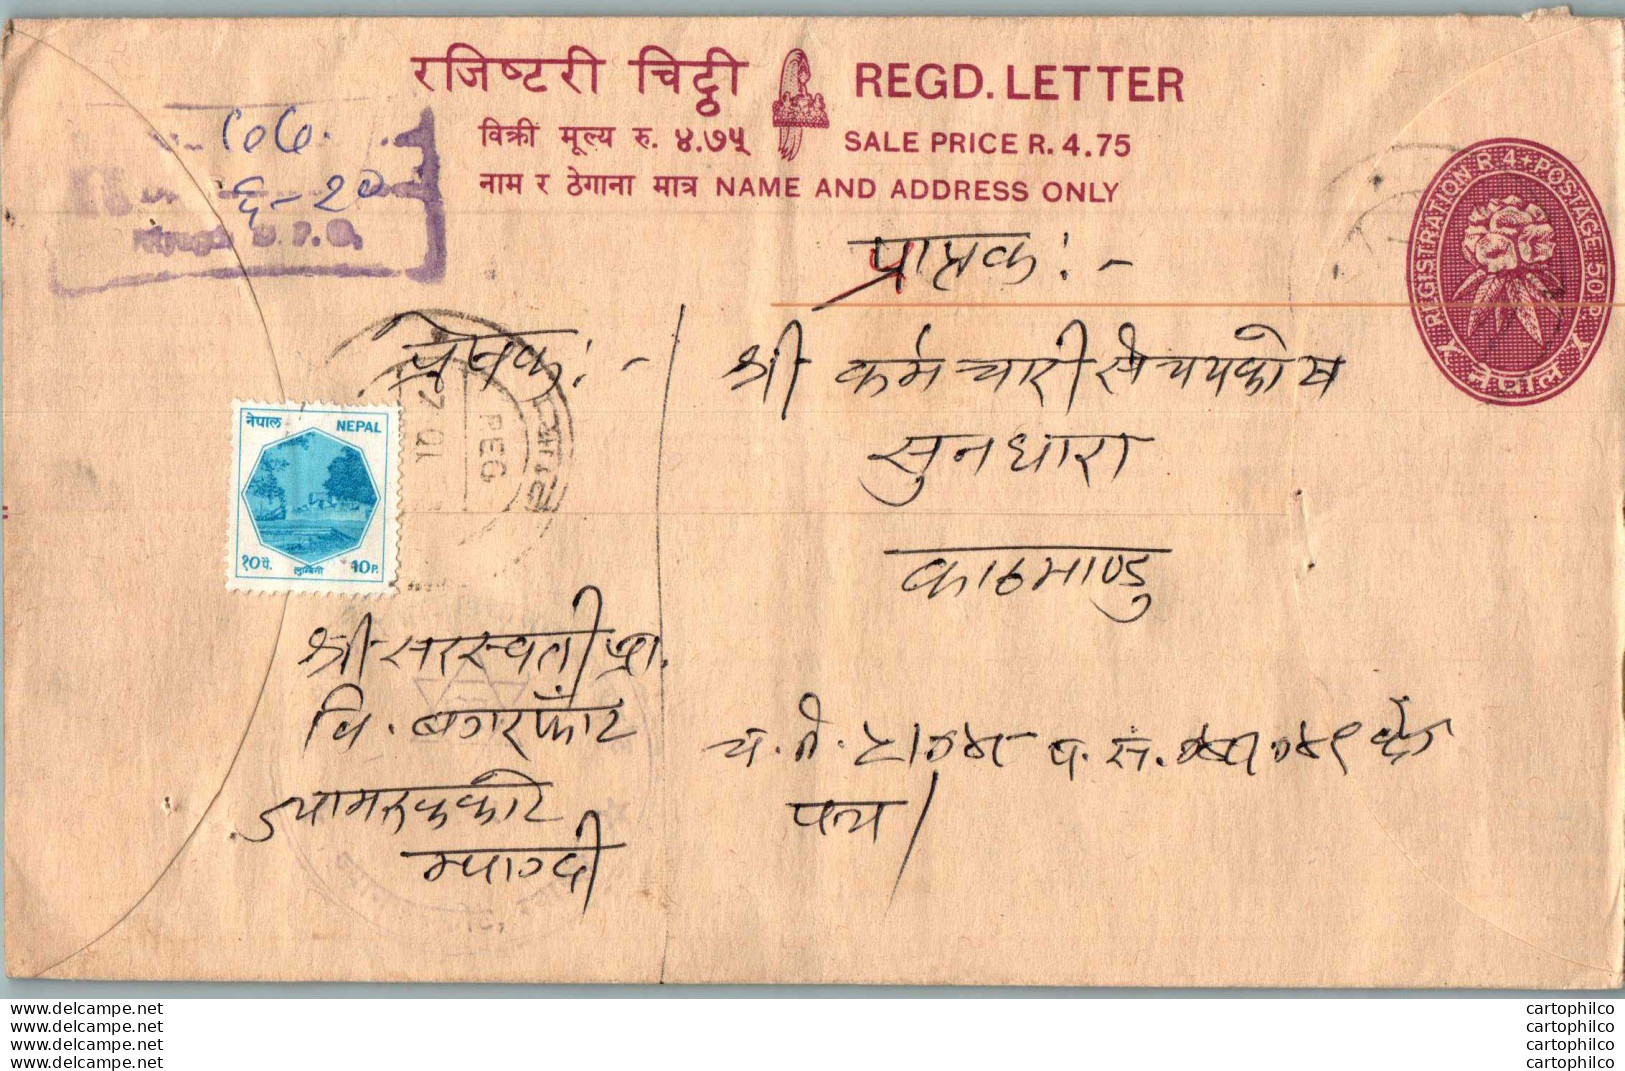 रजिष्टरी चिठ्ठी REGD. LETTER
विक्री मूल्य रु. ४.७५ SALE PRICE R. 4.75
नाम र ठेगाना मात्र NAME AND ADDRESS ONLY
REGISTRATION R 4 + POSTAGE 50 P.
नेपाल
१०७.
६-२०
प्रापक :-
श्री कर्मचारी संचयकोष
सुनधारा
काठमाण्डु
प्रेषक :-
REG
नेपाल NEPAL
१०पै. लुम्बिनी 10P.
श्री सरस्वती प्रा.
वि. बगरफाँट
म्याग्दी
च. नं.
प. सं.
पत्र।
www.delcampe.net
www.delcampe.net
www.delcampe.net
www.delcampe.net
cartophilco
cartophilco
cartophilco
cartophilco